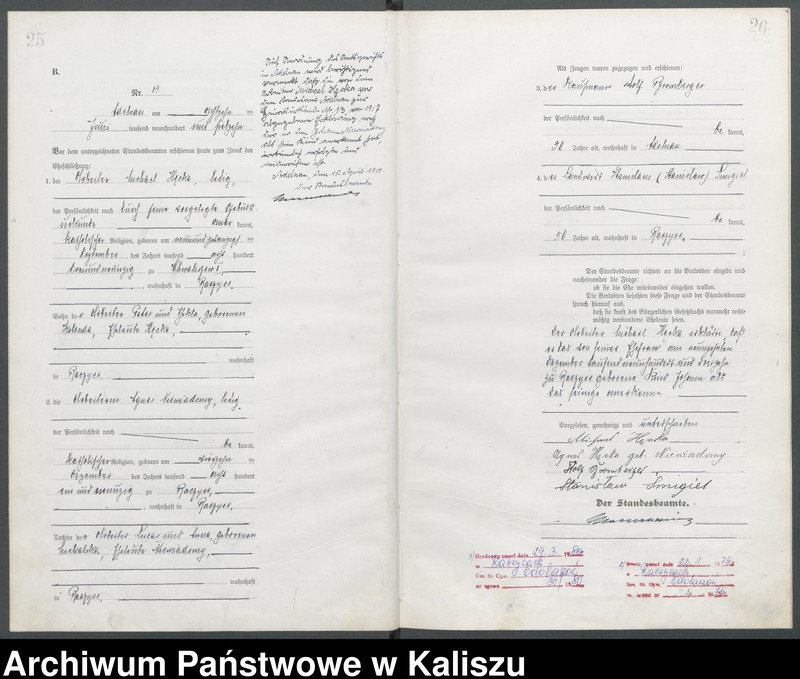 25
B.
Nr. 13
Adelnau am achtzehn ten
Juni tausend neunhundert und siebzehn
Vor dem unterzeichneten Standesbeamten erschienen heute zum Zweck der
Eheschließung:
1. der Arbeiter Michael Hęcka, ledig,
der Persönlichkeit nach durch seine vorgelegte Geburts-
urkunde anerkannt,
katholischer Religion, geboren am neunundzwanzigsten
Dezember des Jahres tausend acht hundert
dreiundneunzig zu Chwaliszew I,
, wohnhaft in Raczyce,
Sohn des Arbeiter Peter und Thekla, geborenen
Eheleute Hęcka,
wohnhaft
in Raczyce.
2. die Arbeiterin Agnes Niewiadomy, ledig,
der Persönlichkeit nach
be kannt,
katholischer Religion, geboren am
Dezember des Jahres tausend acht hundert
ein und neunzig zu Raczyce,
, wohnhaft in Raczyce,
Tochter des Arbeiter Lucas und Anna, geborenen
Michalska, Eheleute Niewiadomy,
wohnhaft
in Raczyce.
Auf Anordnung des Amtsgerichts
in Adelnau wird berichtigend
vermerkt, daß die von dem
Arbeiter Michael Hęcka vor
dem Standesamt Adelnau zur
Heiratsurkunde Nr. 13 von 1917
abgegebene Erklärung, nach
der er den Johann Niewiadomy
als sein Kind anerkannt hat,
irrtümlich erfolgte und
widerrufen ist.
Adelnau, den 15. April 1919
Der Standesbeamte
26
Als Zeugen waren zugezogen und erschienen:
3. der Kaufmann Adolf Bromberger
der Persönlichkeit nach
be kannt,
50 Jahre alt, wohnhaft in Adelnau
4. der Landwirt Stanislaus (Stanisław) Śmigiel
der Persönlichkeit nach
be kannt,
50 Jahre alt, wohnhaft in Raczyce,
Der Standesbeamte richtete an die Verlobten einzeln und
nacheinander die Frage:
ob sie die Ehe miteinander eingehen wollen.
Die Verlobten bejahten diese Frage und der Standesbeamte
sprach hierauf aus,
daß sie kraft des Bürgerlichen Gesetzbuchs nunmehr recht-
mäßig verbundene Eheleute seien.
Der Arbeiter Michael Hęcka erklärte, daß
er das von seiner Ehefrau am neunzehnten
Dezember tausend neunhundert und dreizehn
zu Raczyce geborene Kind Johann als
das seinige anerkenne
Vorgelesen, genehmigt und unterschrieben
Michael Hęcka
Agnes Hęcka geb. Niewiadomy
Adolf Bromberger
Stanisław Śmigiel
Der Standesbeamte.
1) Urodzony zmarł dnia 29.3. 19
w Raczycach
Urz. St. Cyw. Odolanów
nr zgonu
2) zmarł dnia
w Raczycach
Urz. St. Cyw. Odolanów
Archiwum Państwowe w Kaliszu